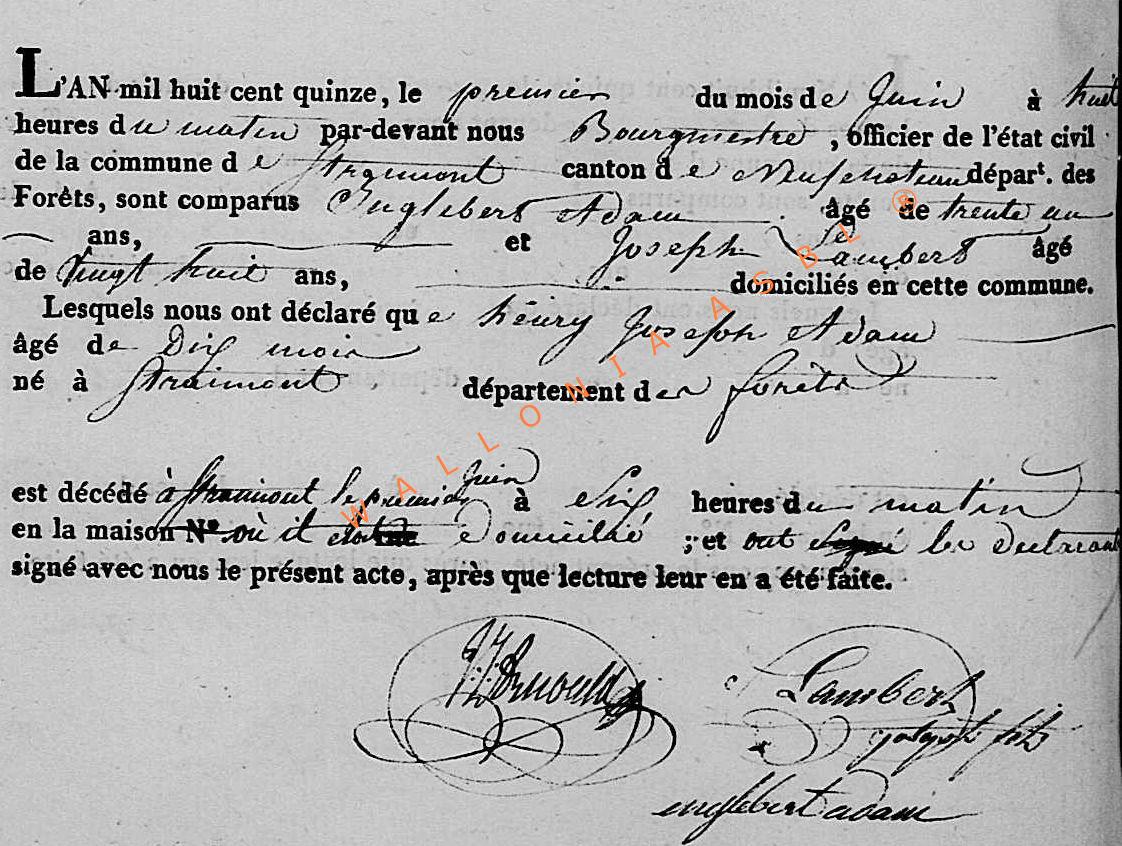 L'AN mil huit cent quinze, le premier du mois de Juin à huit
heures du matin par-devant nous Bourgmestre, officier de l'état civil
de la commune de Straimont canton de Neufchateau départ. des
Forêts, sont comparus Englebert Adam âgé de trente un
ans, et Joseph Lambert âgé
de Vingt huit ans, domiciliés en cette commune.
Lesquels nous ont déclaré que henry Joseph Adam
âgé de Dix mois
né à Straimont département des forêts
est décédé à Straimont le premier Juin à Six heures du matin
en la maison N° où il étoit domicilié ; et ont signé les declarant
signé avec nous le présent acte, après que lecture leur en a été faite.
Lambert
joseph fils
englebert adam
WALLONIA ASBL ®